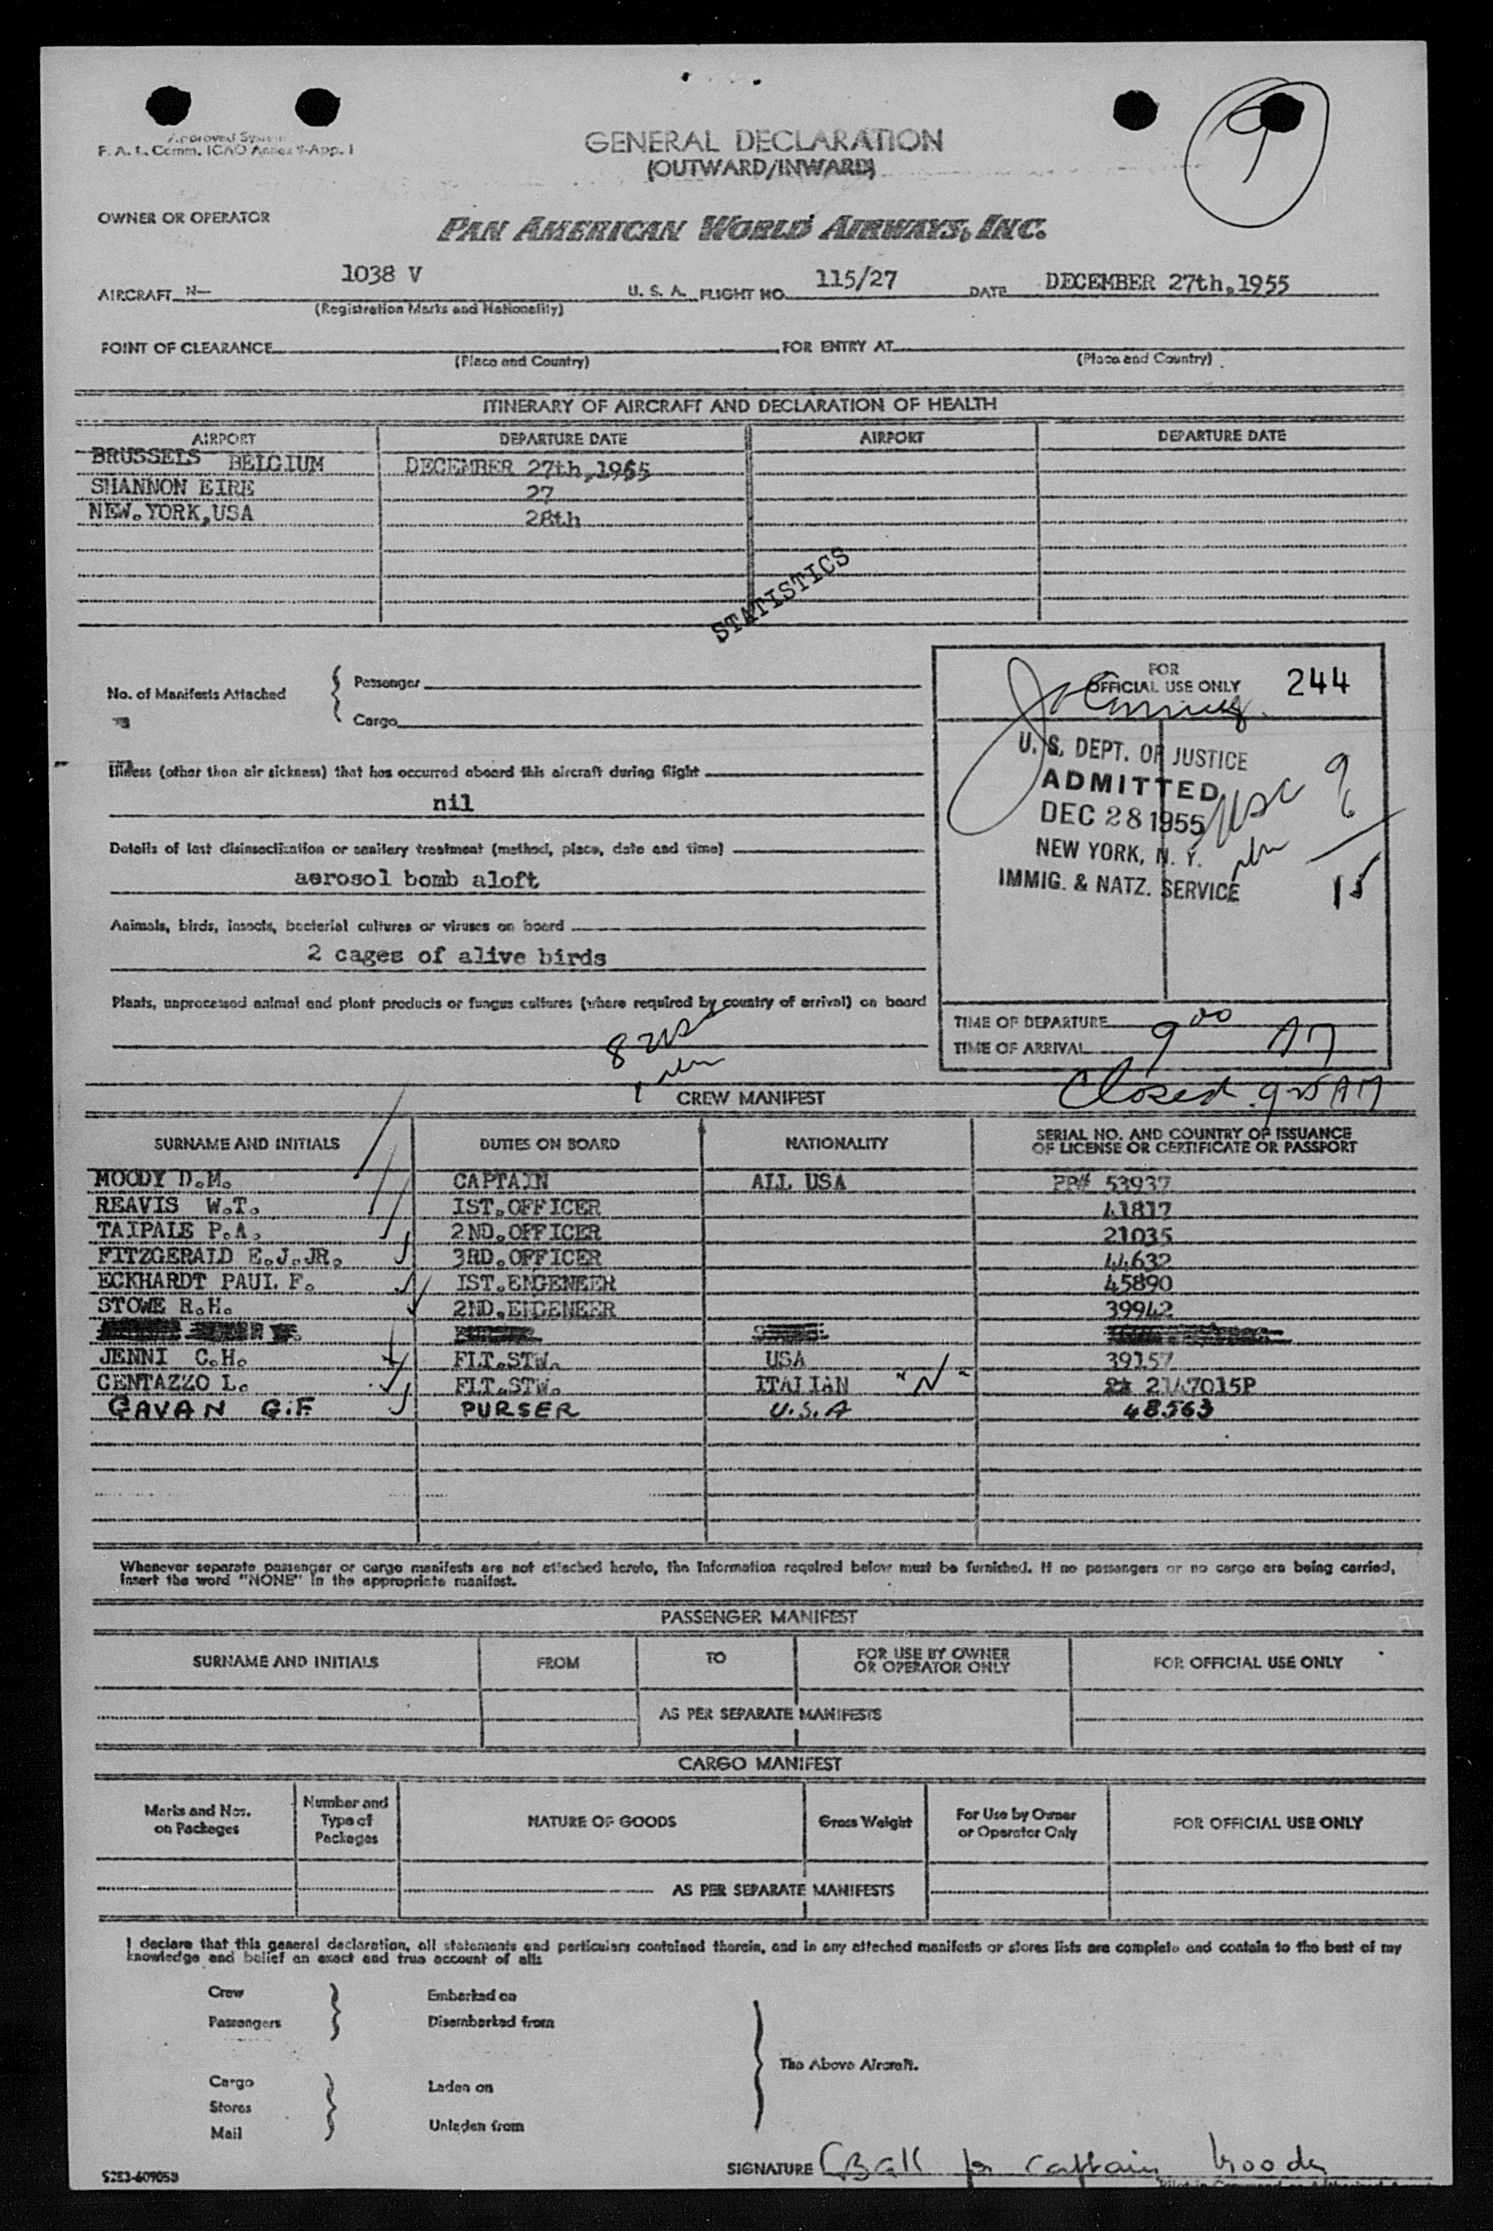 Approved System
F. A. L. Comm. ICAO Annex 9-App. 1
GENERAL DECLARATION
(OUTWARD/INWARD)
9
OWNER OR OPERATOR
PAN AMERICAN WORLD AIRWAYS, INC.
AIRCRAFT N- 1038 V U. S. A. FLIGHT NO. 115/27 DATE DECEMBER 27th,1955
(Registration Marks and Nationality)
POINT OF CLEARANCE FOR ENTRY AT
(Place and Country) (Place and Country)
ITINERARY OF AIRCRAFT AND DECLARATION OF HEALTH
AIRPORT DEPARTURE DATE AIRPORT DEPARTURE DATE
BRUSSELS BELGIUM DECEMBER 27th,1955
SHANNON EIRE 27
NEW.YORK,USA 28th
STATISTICS
No. of Manifests Attached
Passenger
Cargo
FOR
OFFICIAL USE ONLY 244
U. S. DEPT. OF JUSTICE
ADMITTED
DEC 28 1955
NEW YORK, N. Y.
IMMIG. & NATZ. SERVICE
USC 9
6
15
Illness (other than air sickness) that has occurred aboard this aircraft during flight
nil
Details of last disinsectization or sanitary treatment (method, place, date and time)
aerosol bomb aloft
Animals, birds, insects, bacterial cultures or viruses on board
2 cages of alive birds
Plants, unprocessed animal and plant products or fungus cultures (where required by country of arrival) on board
8 USC
TIME OF DEPARTURE
TIME OF ARRIVAL 9 00 AM
Closed 9 25 AM
CREW MANIFEST
SURNAME AND INITIALS DUTIES ON BOARD NATIONALITY SERIAL NO. AND COUNTRY OF ISSUANCE
OF LICENSE OR CERTIFICATE OR PASSPORT
MOODY D.M. CAPTAIN ALL USA PP# 53937
REAVIS W.T. IST.OFFICER 41817
TAIPALE P.A. 2ND.OFFICER 21035
FITZGERALD E.J.JR. 3RD.OFFICER 44632
ECKHARDT PAUL F. IST.ENGENEER 45890
STOWE R.H. 2ND.ENGENEER 39942
JENNI C.H. FLT.STW. USA 39157
CENTAZZO L. FLT.STW. ITALIAN "N" 2147015P
GAVAN G.F. PURSER U.S.A 48563
Whenever separate passenger or cargo manifests are not attached hereto, the information required below must be furnished. If no passengers or no cargo are being carried,
insert the word "NONE" in the appropriate manifest.
PASSENGER MANIFEST
SURNAME AND INITIALS FROM TO FOR USE BY OWNER
OR OPERATOR ONLY FOR OFFICIAL USE ONLY
AS PER SEPARATE MANIFESTS
CARGO MANIFEST
Marks and Nos.
on Packages
Number and
Type of
Packages
NATURE OF GOODS
Gross Weight
For Use by Owner
or Operator Only
FOR OFFICIAL USE ONLY
AS PER SEPARATE MANIFESTS
I declare that this general declaration, all statements and particulars contained therein, and in any attached manifests or stores lists are complete and contain to the best of my
knowledge and belief an exact and true account of all:
Crew Embarked on
Passengers Disembarked from
The Above Aircraft.
Cargo Laden on
Stores
Mail Unladen from
SIGNATURE CBall for Captain Moody
52E3-609053